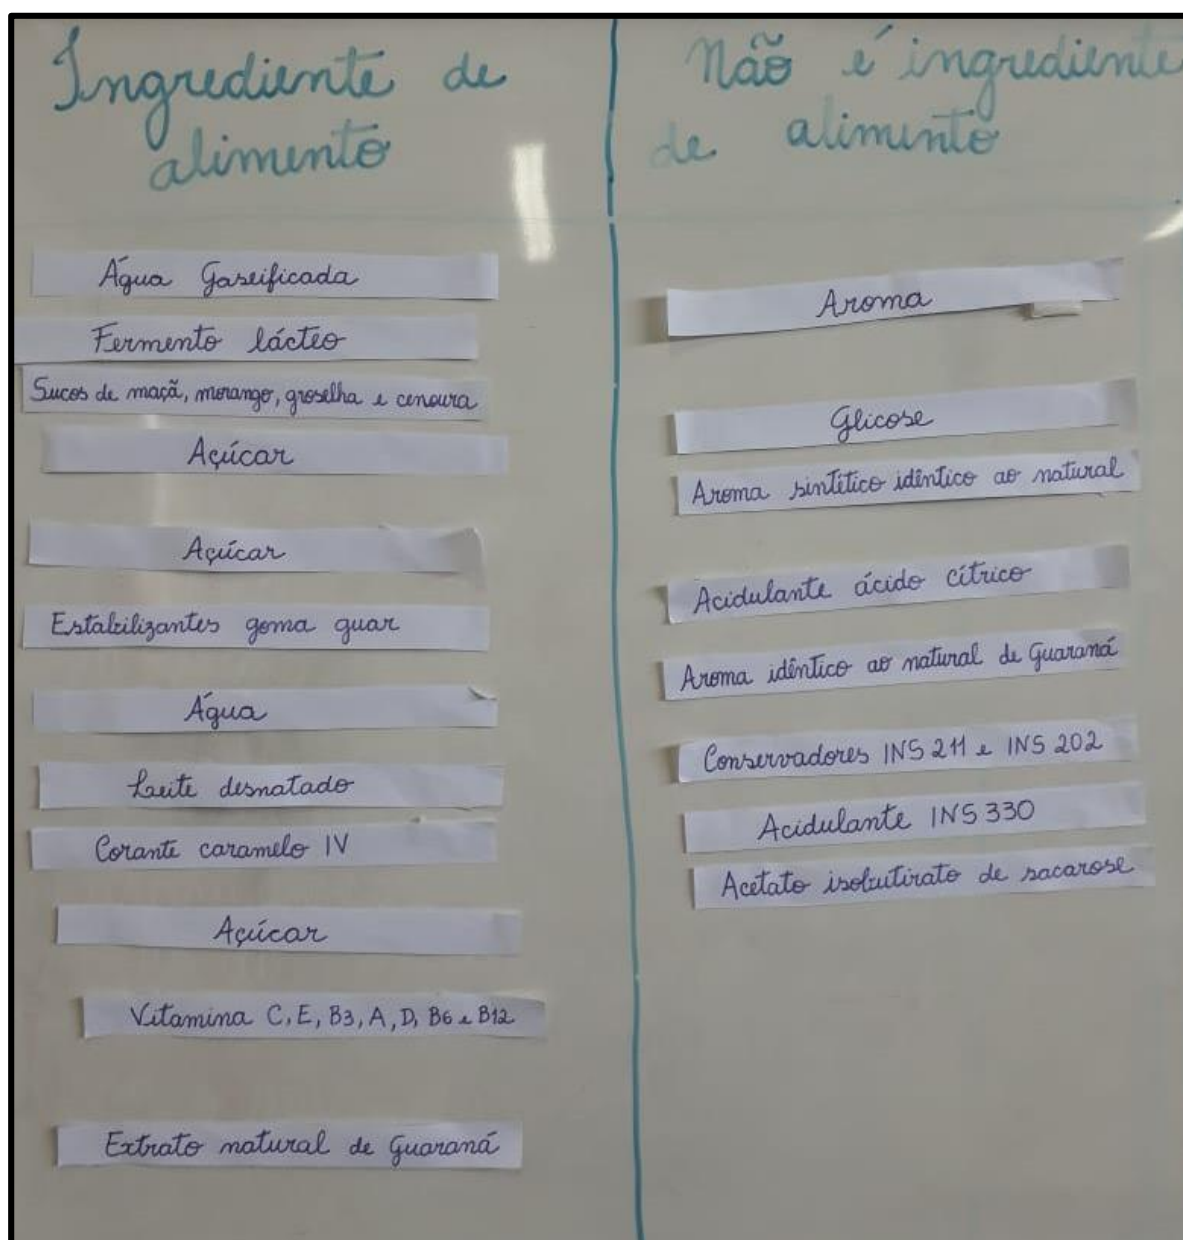 Ingrediente de
alimento
Água Gaseificada
Fermento lácteo
Sucos de maçã, morango, groselha e cenoura
Açúcar
Açúcar
Estabilizantes goma guar
Água
Leite desnatado
Corante caramelo IV
Açúcar
Vitamina C, E, B3, A, D, B6 e B12
Extrato natural de Guaraná
Não é ingrediente
de alimento
Aroma
Glicose
Aroma sintético idêntico ao natural
Acidulante ácido cítrico
Aroma idêntico ao natural de Guaraná
Conservadores INS 211 e INS 202
Acidulante INS 330
Acetato isobutirato de sacarose